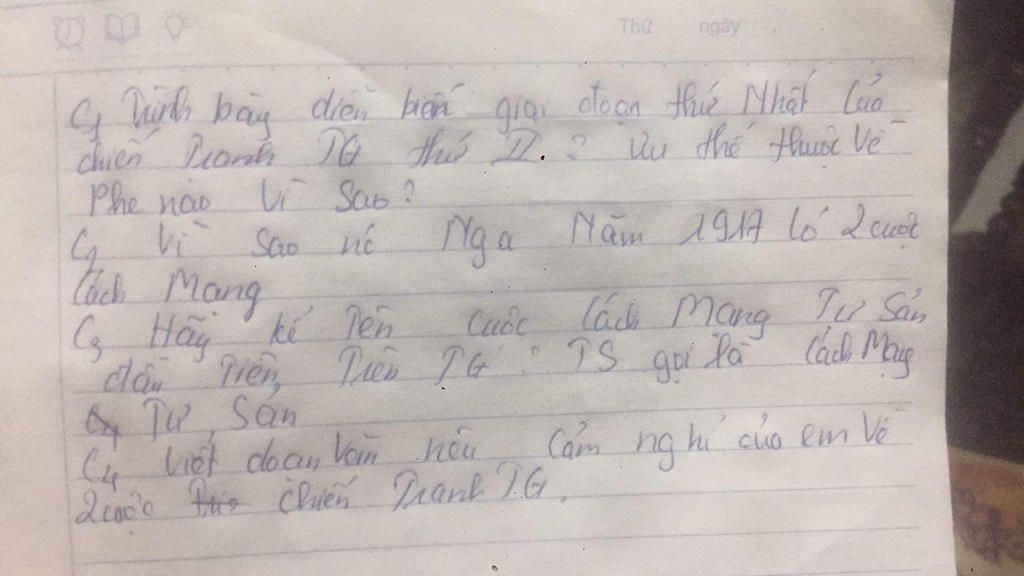 Thứ ngày
C1 Trình bày diễn biến giai đoạn thứ Nhất Của
chiến Tranh TG thứ II.? Ưu thế thuộc Về
Phe nào Vì Sao?
C2 Vì Sao nc Nga Năm 1917 Có 2 cuộc
Cách Mạng
C3 Hãy kể Tên cuộc Cách Mạng Tư Sản
đầu Tiên Trên TG ? TS gọi Là Cách Mạng
Tư Sản
C4 Viết đoạn Văn nêu Cảm nghĩ của em Về
2 cuộc chiến Tranh TG.